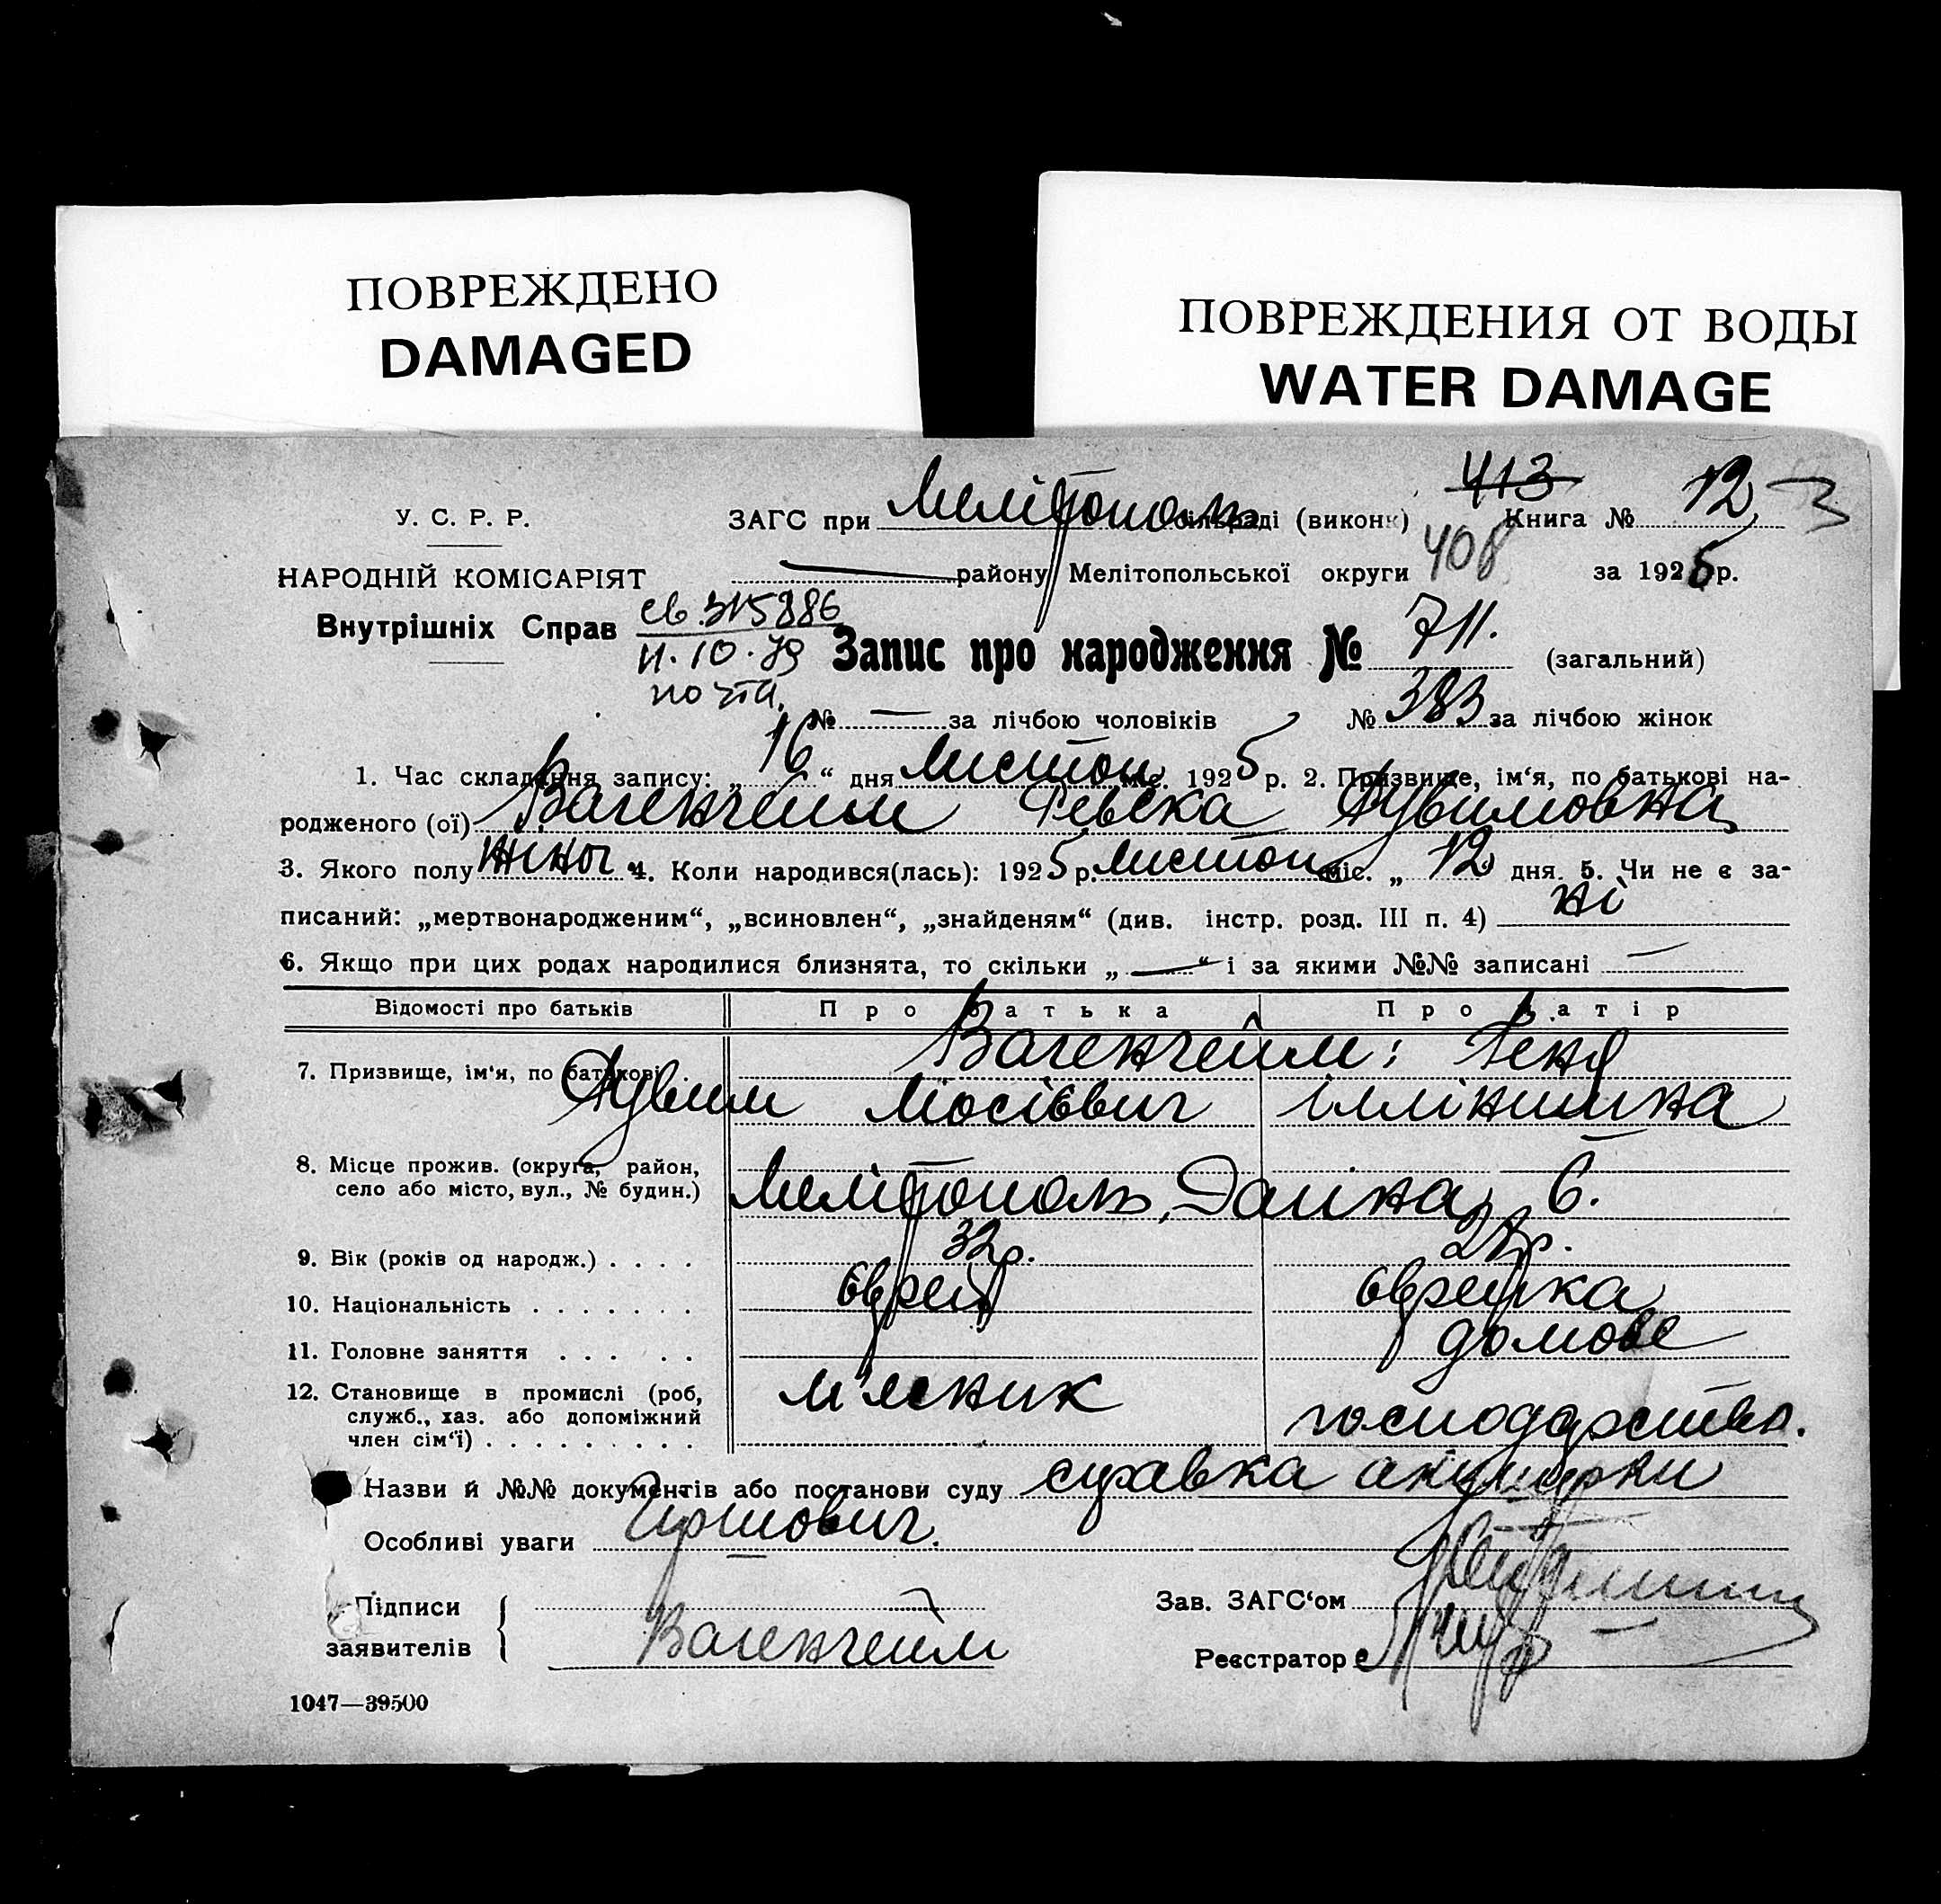 ПОВРЕЖДЕНО
DAMAGED
ПОВРЕЖДЕНИЯ ОТ ВОДЫ
WATER DAMAGE
413
У. С. Р. Р. ЗАГС при Мелітополь сільраді (викон.) Книга № 12
НАРОДНІЙ КОМІСАРІЯТ — району Мелітопольської округи 408 за 1925 р.
Внутрішніх Справ
св. 315886
11.10.79
почта.
Запис про народження № 711. (загальний)
№ — за лічбою чоловіків № 383 за лічбою жінок
1. Час складання запису: „16“ дня Листоп міс. 1925 р. 2. Призвище, ім‘я, по батькові на-
родженого (ої) Вагенгейм Ревека
3. Якого полу жіноч 4. Коли народився(лась): 1925 р. листоп міс. „12 дня. 5. Чи не є за-
писаний: „мертвонародженим“, „всиновлен“, „знайденям“ (див. інстр. розд. III п. 4) ні
6. Якщо при цих родах народилися близнята, то скільки „—“ і за якими №№ записані —
Відомості про батьків Про батька Про матір
7. Призвище, ім‘я, по батькові Вагенгейм:
8. Місце прожив. (округа, район,
село або місто, вул., № будин.) Мелітополь, 6.
9. Вік (років од народж.) . . . . 32 р.
10. Національність . . . . . . . єврей єврейка
11. Головне заняття . . . . . домове
12. Становище в промислі (роб, м'ясник
служб., хаз. або допоміжний господарство.
член сім‘ї) . . . . . . . . .
Назви й №№ документів або постанови суду справка акушерки
Особливі уваги
Підписи Зав. ЗАГС‘ом
заявителів Вагенгейм
Реєстратор
1047—39500